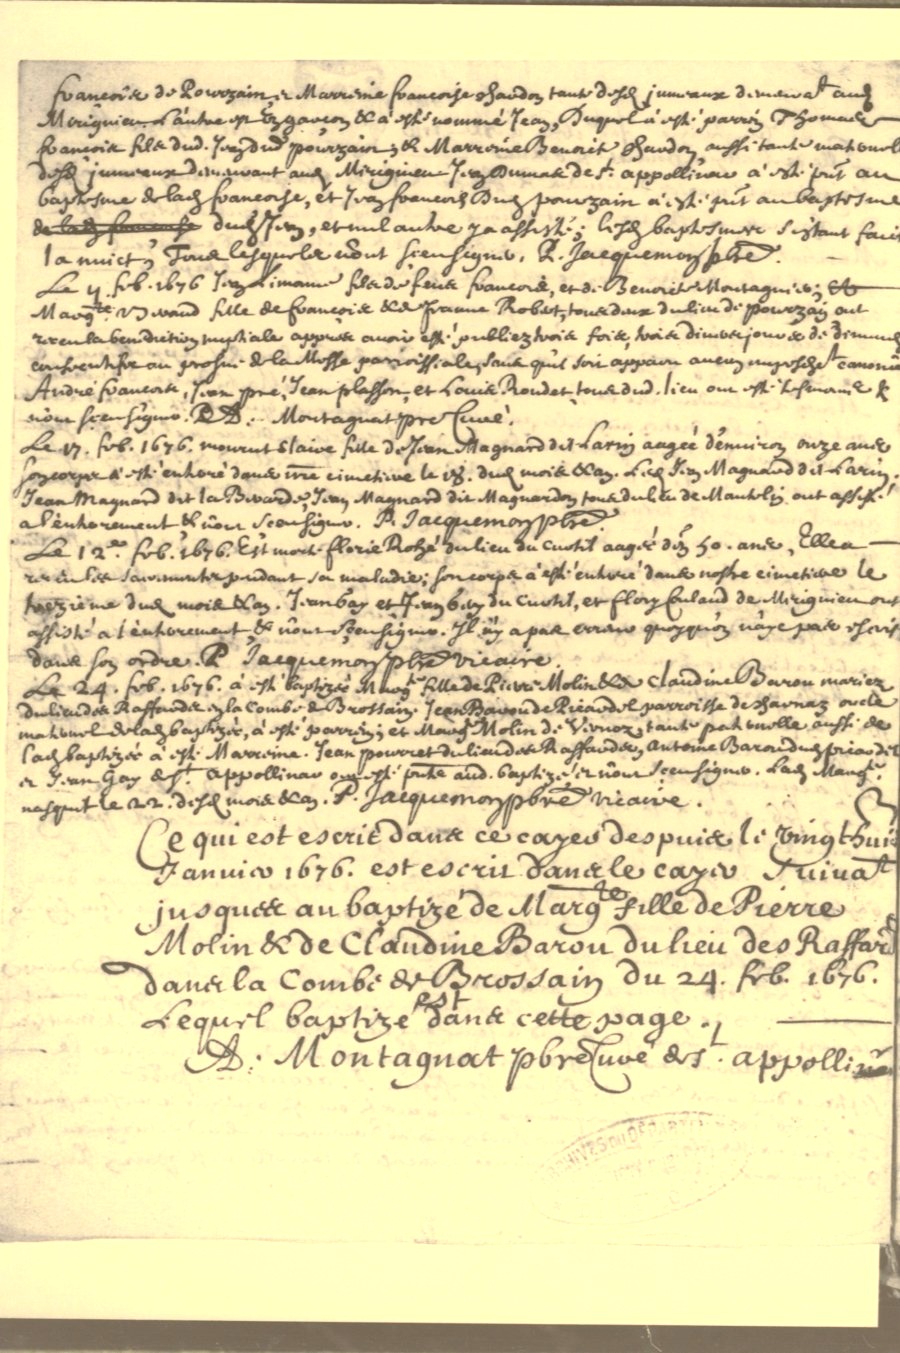 françoise de Pourzain, et Marreine françoise chardon tante desd. jumeaux demeurat aud.
Mirignieu. L'autre est un garçon & a esté nommé Jean, Duquel a esté parrein Thomas
françois fils dud. Jean dud. pourzain, & Marreine Benoite chardon aussi tante maternelle
desd. jumeaux demeurant aud. Mirignieu Jean Dumas de St. appollinar a esté pnt au
baptesme de lad. françoise, et Jean françois Dud. pourzain a esté pnt au baptesme
de lad. françoise dud. Jean, et nul autre y a assisté; lesd. baptesmes s'estant faits
la nuict, Tous lesquels n'ont sceu signer. P. Jacquemon pbre.
Le 4. feb. 1676 Jean Limonne fils de feux françois, et de Benoite Montagnier; &
Margte. fille de françois & de Jeanne Robert, tous deux du lieu de pourzain ont
receu la benediction nuptiale apprès avoir esté publiez trois fois, trois divers jours de dimenche
consecutifs au prosne de la Messe parroissiale, sans qu'il soit apparu aucun empeschet canonique
André françois, Jean Jean plasson, et Louis Roudet tous dud. lieu ont esté tesmoins &
n'ont sceu signer. A. Montagnat pre Curé.
Le 17. feb. 1676. mourut Claire fille de Jean Magnard dit Larin aagée d'environ onze ans
son corps a esté enterré dans nre cimetiere le 18. dud. mois & an. Led. Jean Magnard dit Larin,
Jean Magnard dit la Bivarde, Jean Magnard dit Magnardon tous du lieu de Mantelin ont assisté
a l'enterrement & n'ont sceu signer. P. Jacquemon pbre.
Le 12me feb. 1676. Est morte florie Roze du lieu du curtil aagée d'en. 50. ans, Ellea
receu les sacrements pendant sa maladie; son corps a esté enterré dans nostre cimetiere le
trezieme dud. mois & an. Jean bay et Jean bay du curtil, et flory de Mirignieu ont
assisté a l'enterrement & n'ont sceu signer. Il n'y a pas erreur quoyqu'on n'aye pas escrit
dans son ordre. P. Jacquemon pbre vicaire.
Le 24. feb. 1676. a esté baptizée Margte fille de Pierre Molin & de Claudine Barou mariez
du lieu des Raffards en la Combe de Brossain. Jean Barou de Picardel parroisse de charnas oncle
maternel de lad. baptizée, a esté parrein; et Margte Molin de Vernoz, tante paternelle aussi de
lad. baptizée a esté Marreine. Jean pourret du lieu des Raffards, Antoine Barou dud. picardel
et Jean Gay de St. appollinar ont esté pnts aud. baptizé et n'ont sceu signer. Lad. Margte.
nasquit le 22. desd. mois & an. P. Jacquemon pbre vicaire.
Ce qui est escrit dans ce cayer despuis le vingthuit
Janvier 1676. est escrit dans le cayer Suivat
jusques au baptizé de Margte fille de Pierre
Molin & de Claudine Barou du lieu des Raffards
dans la Combe de Brossain du 24. feb. 1676.
Lequel baptizé est dans cette page.
A. Montagnat pbre Curé de St. appollinar